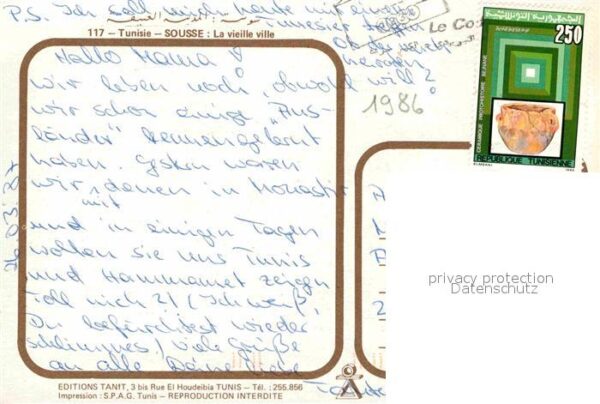 P.S. Ich soll mich heute mit einem
سوسة : المدينة العتيقة
117 – Tunisie – SOUSSE : La vieille ville
Hallo Mama!
wir leben noch, obwohl
will?
wir schon einige "Aus-
länder" kennengelernt
haben. Gestern waren
wir mit denen in Monastir
und in einigen Tagen
wollen sie uns Tunis
und Hammamet zeigen
Toll nich?! (Ich weiß,
Du befürchtest wieder
schlimmes) Viele Grüße
an alle Deine liebe
26.03.87
1986
Le Co
الجمهورية التونسية
250
CERAMIQUE PROTOHISTOIRE SEJNANE
REPUBLIQUE TUNISIENNE
privacy protection
Datenschutz
EDITIONS TANIT, 3 bis Rue El Houdeibia TUNIS – Tél. : 255.856
Impression : S.P.A.G. Tunis – REPRODUCTION INTERDITE